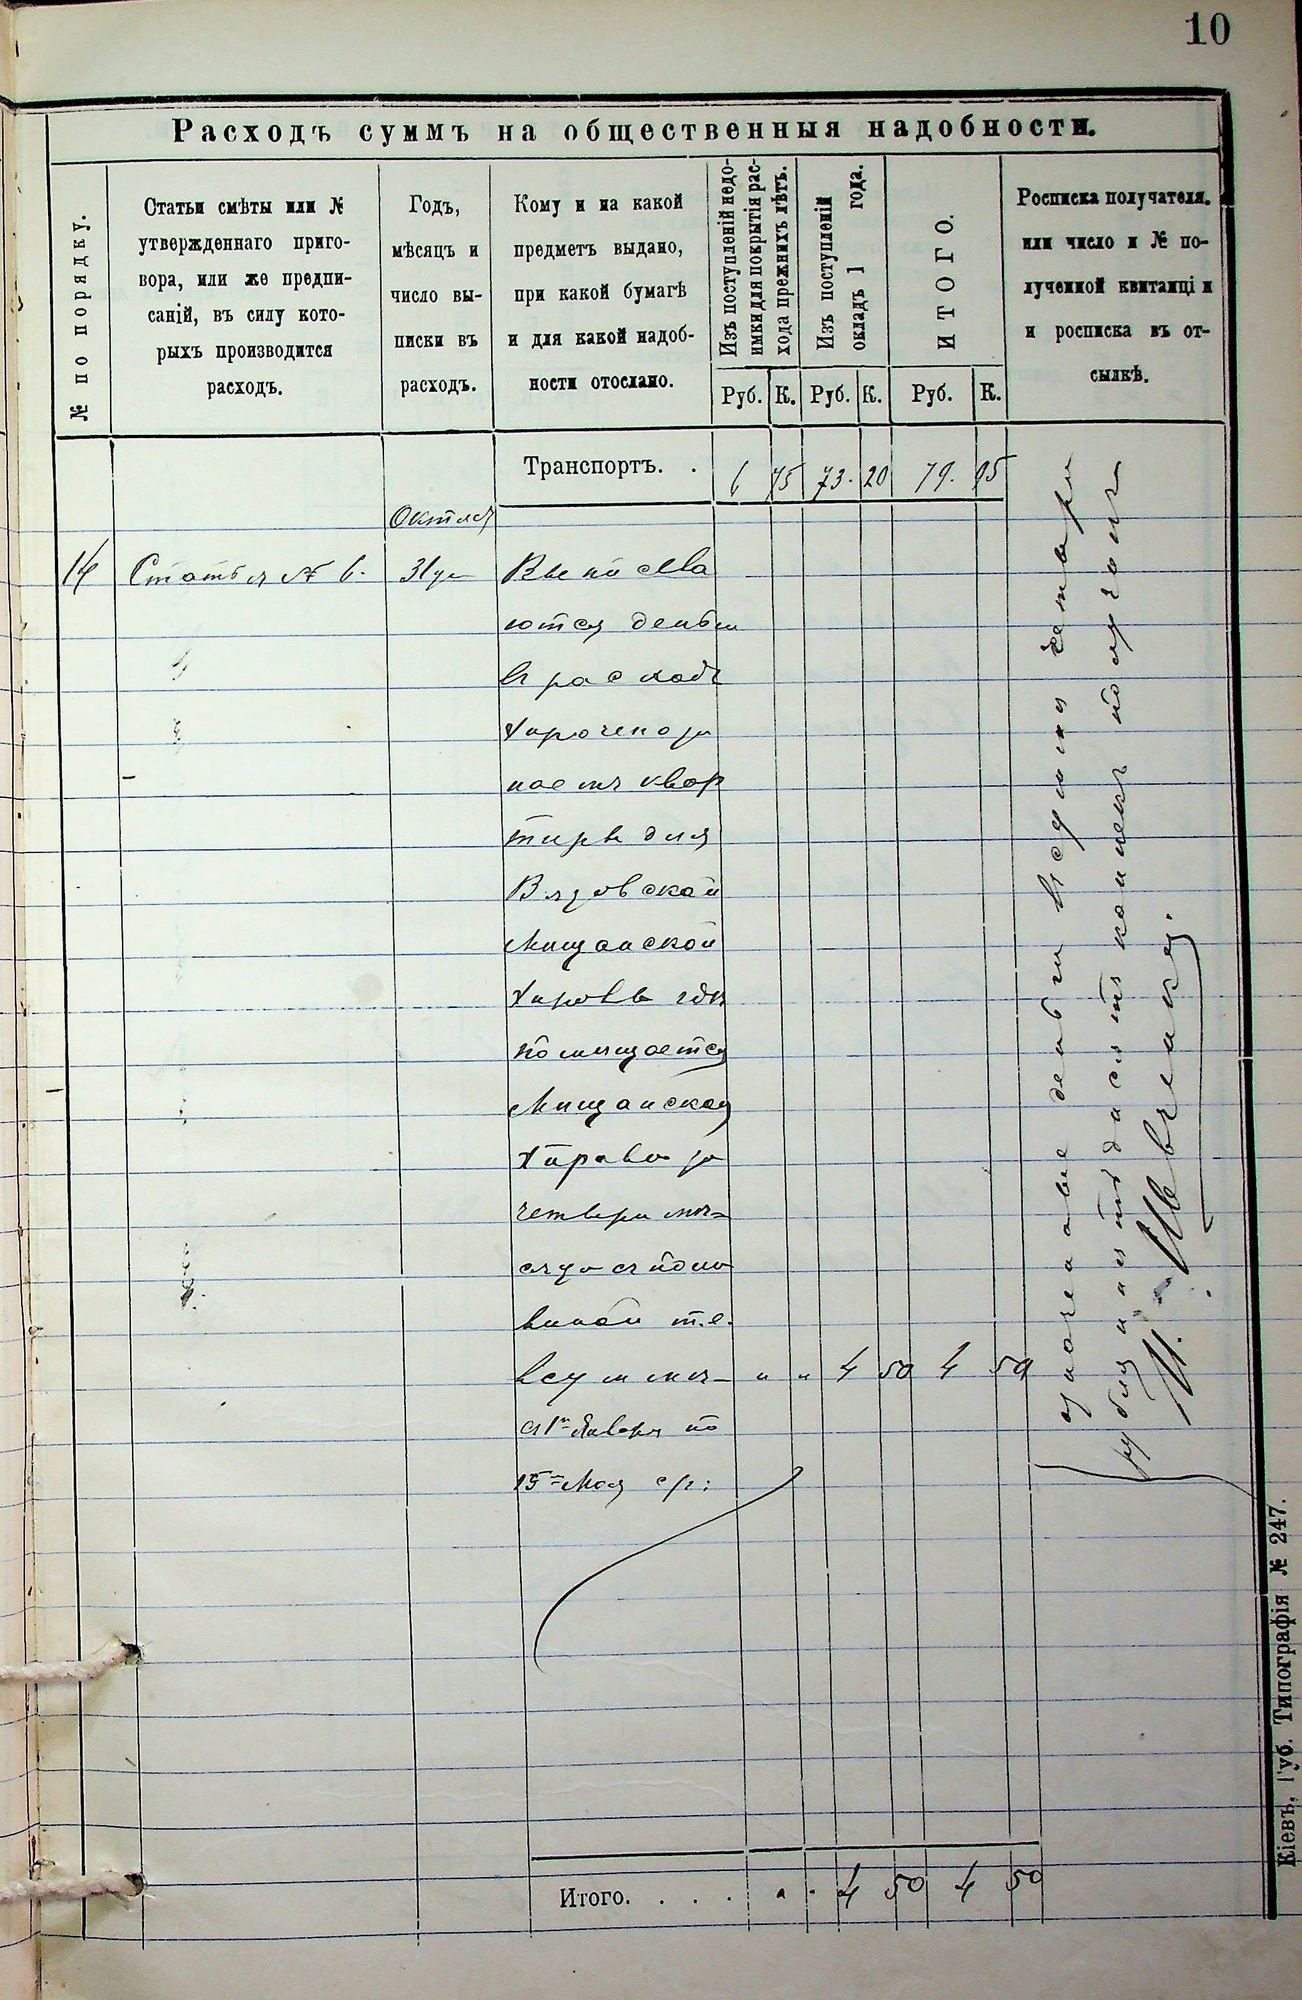 10
Расходъ суммъ на общественныя надобности.
№ по порядку.
Статьи смѣты или №
утвержденнаго приго-
вора, или же предпи-
саній, въ силу кото-
рыхъ производится
расходъ.
Годъ,
мѣсяцъ и
число вы-
писки въ
расходъ.
Кому и на какой
предметъ выдано,
при какой бумагѣ
и для какой надоб-
ности отослано.
Изъ поступленій недо-
имки для покрытія рас-
хода прежнихъ лѣтъ.
Изъ поступленій
окладъ 1 года.
ИТОГО.
Росписка получателя.
или число и № по-
лученной квитанціи
и росписка въ от-
сылкѣ.
Руб. К. Руб. К. Руб. К.
Транспортъ. . 6 75 73. 20 79. 95
14 Статья № 6. 31
ются деньги
в расходъ
наемъ квар
тиры для
Вязовской
Мищанской
Управы где
помищается
Мищанская
Управа за
четыри мися
ца съ поло
виной т.е.
" " 4 50 4 50
съ 1го Января по
15го Мая с/г:
означеные деньги четыри
рубля пятдасятъ копиекъ получилъ
И. Шевченко.
Итого. . . . 4 50 4 50
Кіевъ, Губ. Типографія № 247.